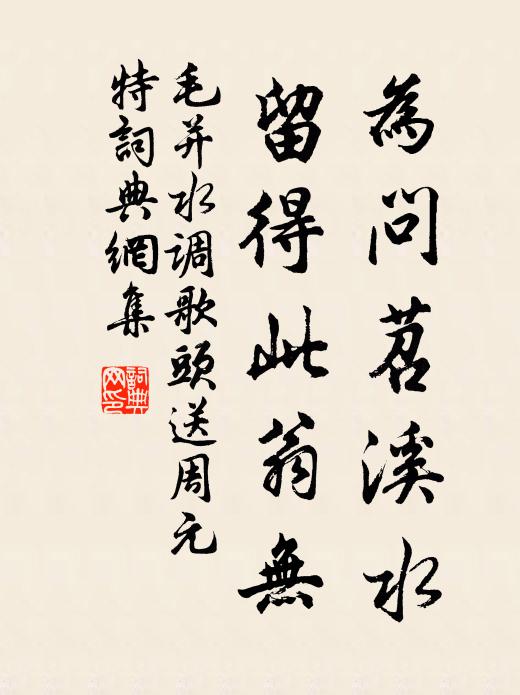 為問苕溪水
留得此翁無
毛并水調歌頭送周元
特詞典網集
詞典
网印